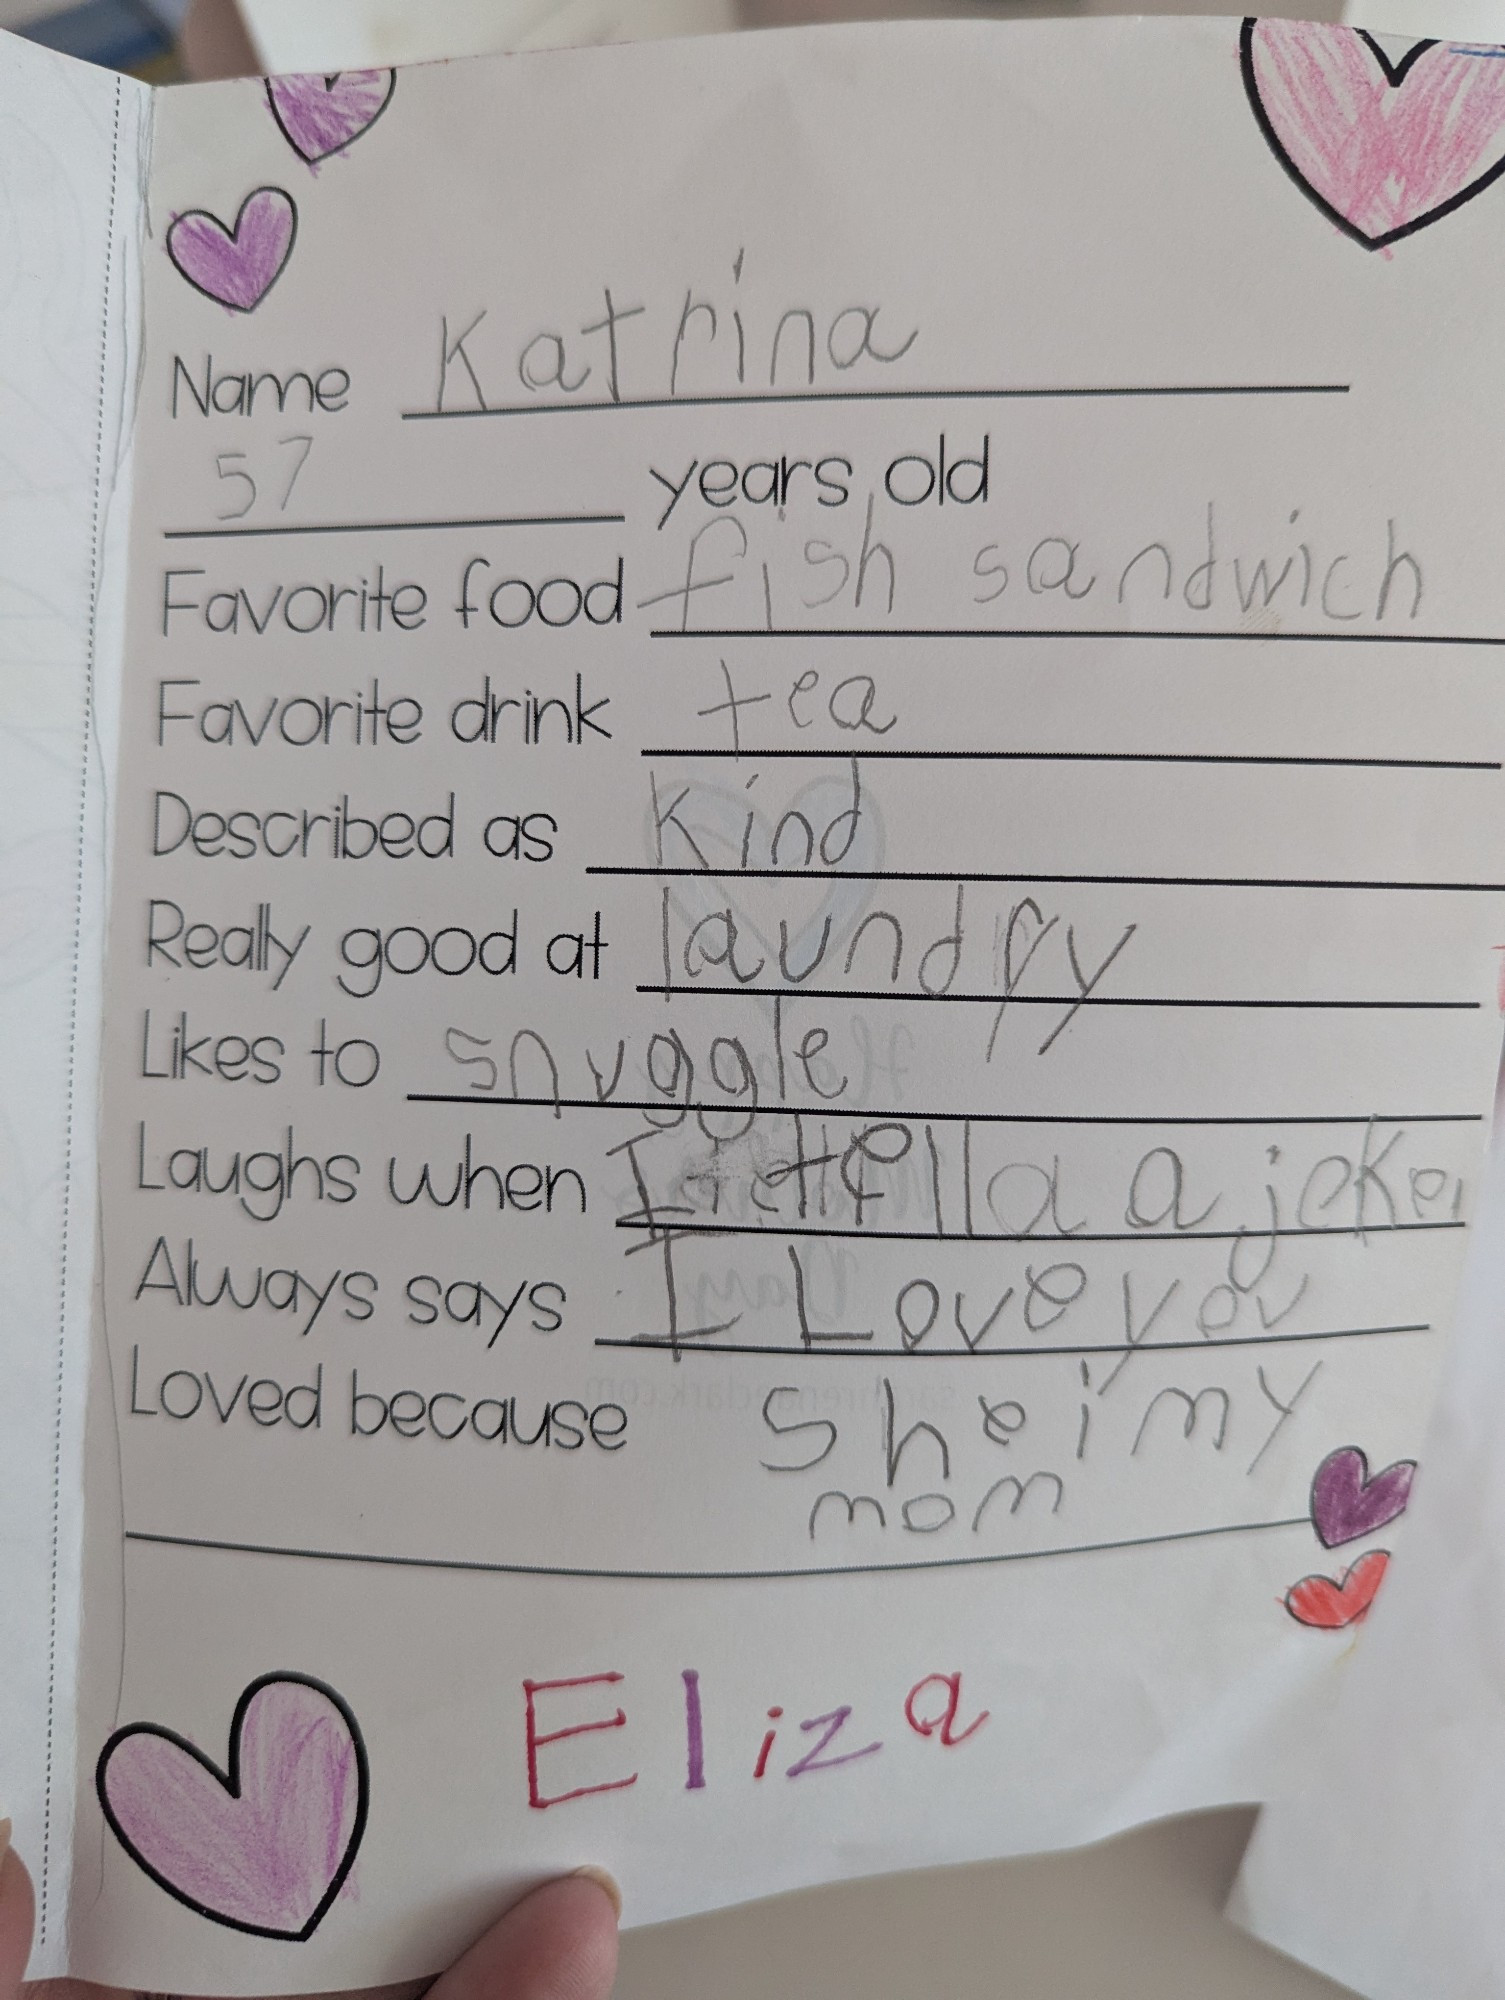 Name Katrina
57 years old
Favorite food fish sandwich
Favorite drink tea
Described as kind
Really good at laundry
Likes to snuggle
Laughs when I tell a a joke
Always says I Love you
Loved because she i my
mom
Eliza